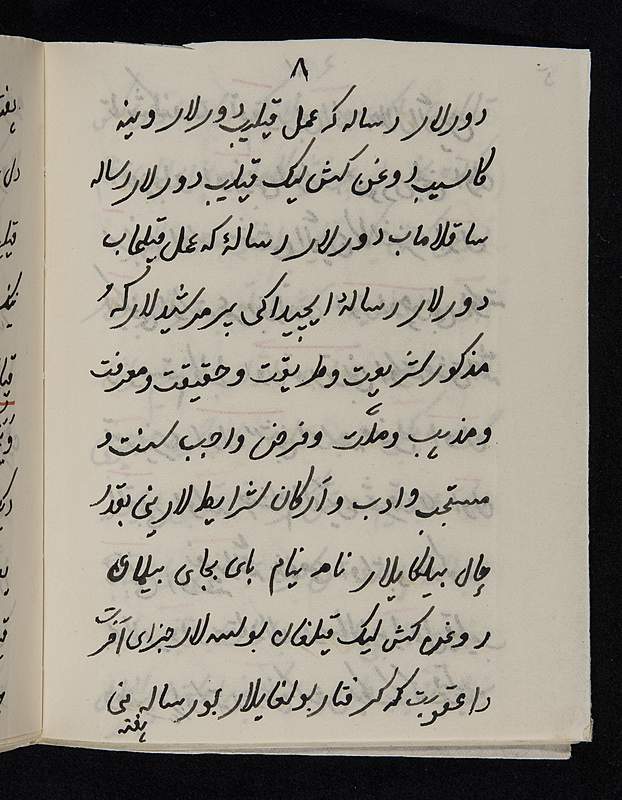 ٨
دورلار رساله که عمل قیلیب دورلار وینه
کاسیب دوغن کش لیک قیلیب دورلار رساله
ساقلاماب دورلار رسالهٔ که عمل قیلماب
دورلار رسالهٔ ایچیداکی پیر مرشیدلار که
مذکور شریعت و طریقت و حقیقت و معرفت
و مذهب و ملّت و فرض واجب سنت و
مستحب و ادب و ارکان شرایط لارینی بقدر
حال بیلکایلار نام بنام بای بجای بیلمای
روغن کش لیک قیلغان بولسه لار جزای آخرت
دا عقوبت که گرفتار بولغایلار بو رساله نی
هفته